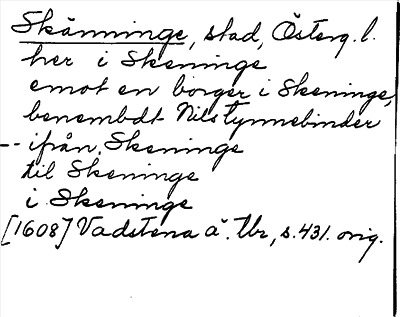 Skänninge, stad, Österg. l.
her i Skeninge
emot en borger i Skeninge,
benembdt Nils tynnebinder
-- ifrån Skeninge
til Skeninge
i Skeninge
[1608] Vadstena ä. Tbr, s. 431. orig.